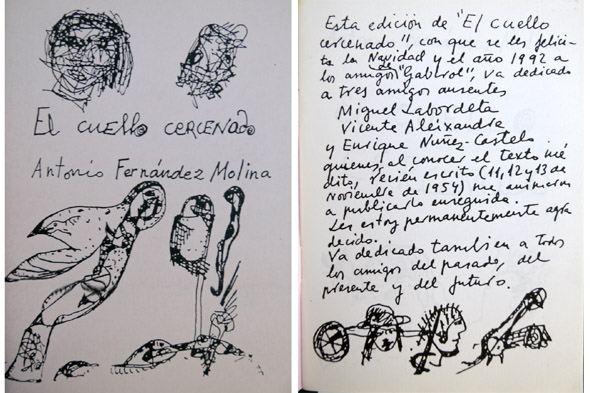 El cuello cercenado
Antonio Fernández Molina
Esta edición de "El cuello
cercenado", con que se les felici-
ta la Navidad y el año 1992 a
los amigos de "Gabbrol", va dedicado
a tres amigos ausentes
Miguel Labordeta
Vicente Aleixandre
y Enrique Nuñez-Castelo
quienes, al conocer el texto iné
dito, recien escrito (11, 12 y 13 de
Noviembre de 1954) me animaron
a publicarlo enseguida.
Les estoy permanentemente agra
decido.
Va dedicado tambien a todos
los amigos del pasado, del
presente y del futuro.